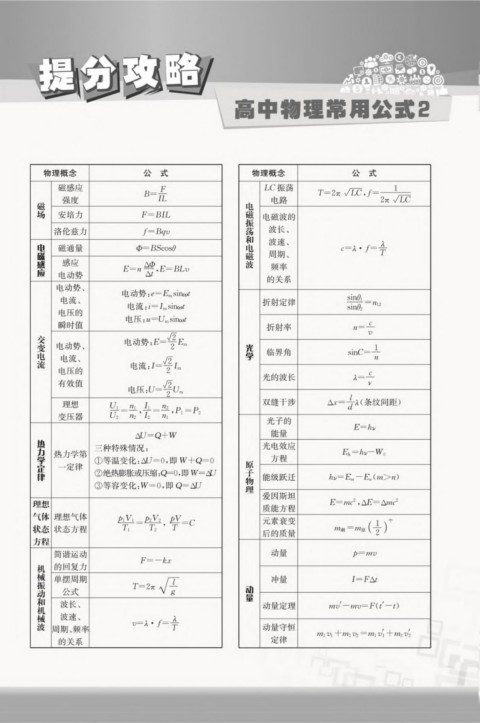 提分攻略
高中物理常用公式2
物理概念 公 式
磁场
磁感应强度 B=F/IL
安培力 F=BIL
洛伦兹力 f=Bqv
电磁感应
磁通量 Φ=BScosθ
感应电动势 E=nΔΦ/Δt,E=BLv
交变电流
电动势、电流、电压的瞬时值
电动势:e=Eₘsinωt
电流:i=Iₘsinωt
电压:u=Uₘsinωt
电动势、电流、电压的有效值
电动势:E=√2/2Eₘ
电流:I=√2/2Iₘ
电压:U=√2/2Uₘ
理想变压器 U₁/U₂=n₁/n₂,I₁/I₂=n₂/n₁,P₁=P₂
热力学定律
热力学第一定律
ΔU=Q+W
三种特殊情况:
①等温变化:ΔU=0,即W+Q=0
②绝热膨胀或压缩:Q=0,即W=ΔU
③等容变化:W=0,即Q=ΔU
理想气体状态方程
理想气体状态方程 p₁V₁/T₁=p₂V₂/T₂,pV/T=C
机械振动和机械波
简谐运动的回复力 F=-kx
单摆周期公式 T=2π√(l/g)
波长、波速、周期、频率的关系 v=λ·f=λ/T
物理概念 公 式
电磁振荡和电磁波
LC振荡电路 T=2π√LC,f=1/2π√LC
电磁波的波长、波速、周期、频率的关系 c=λ·f=λ/T
光学
折射定律 sinθ₁/sinθ₂=n₁₂
折射率 n=c/v
临界角 sinC=1/n
光的波长 λ=c/ν
双缝干涉 Δx=l/dλ(条纹间距)
原子物理
光子的能量 E=hν
光电效应方程 Eₖ=hν-W₀
能级跃迁 hν=Eₘ-Eₙ(m>n)
爱因斯坦质能方程 E=mc²,ΔE=Δmc²
元素衰变后的质量
动量
动量 p=mv
冲量 I=FΔt
动量定理 mv′-mv=F(t′-t)
动量守恒定律 m₁v₁+m₂v₂=m₁v₁′+m₂v₂′